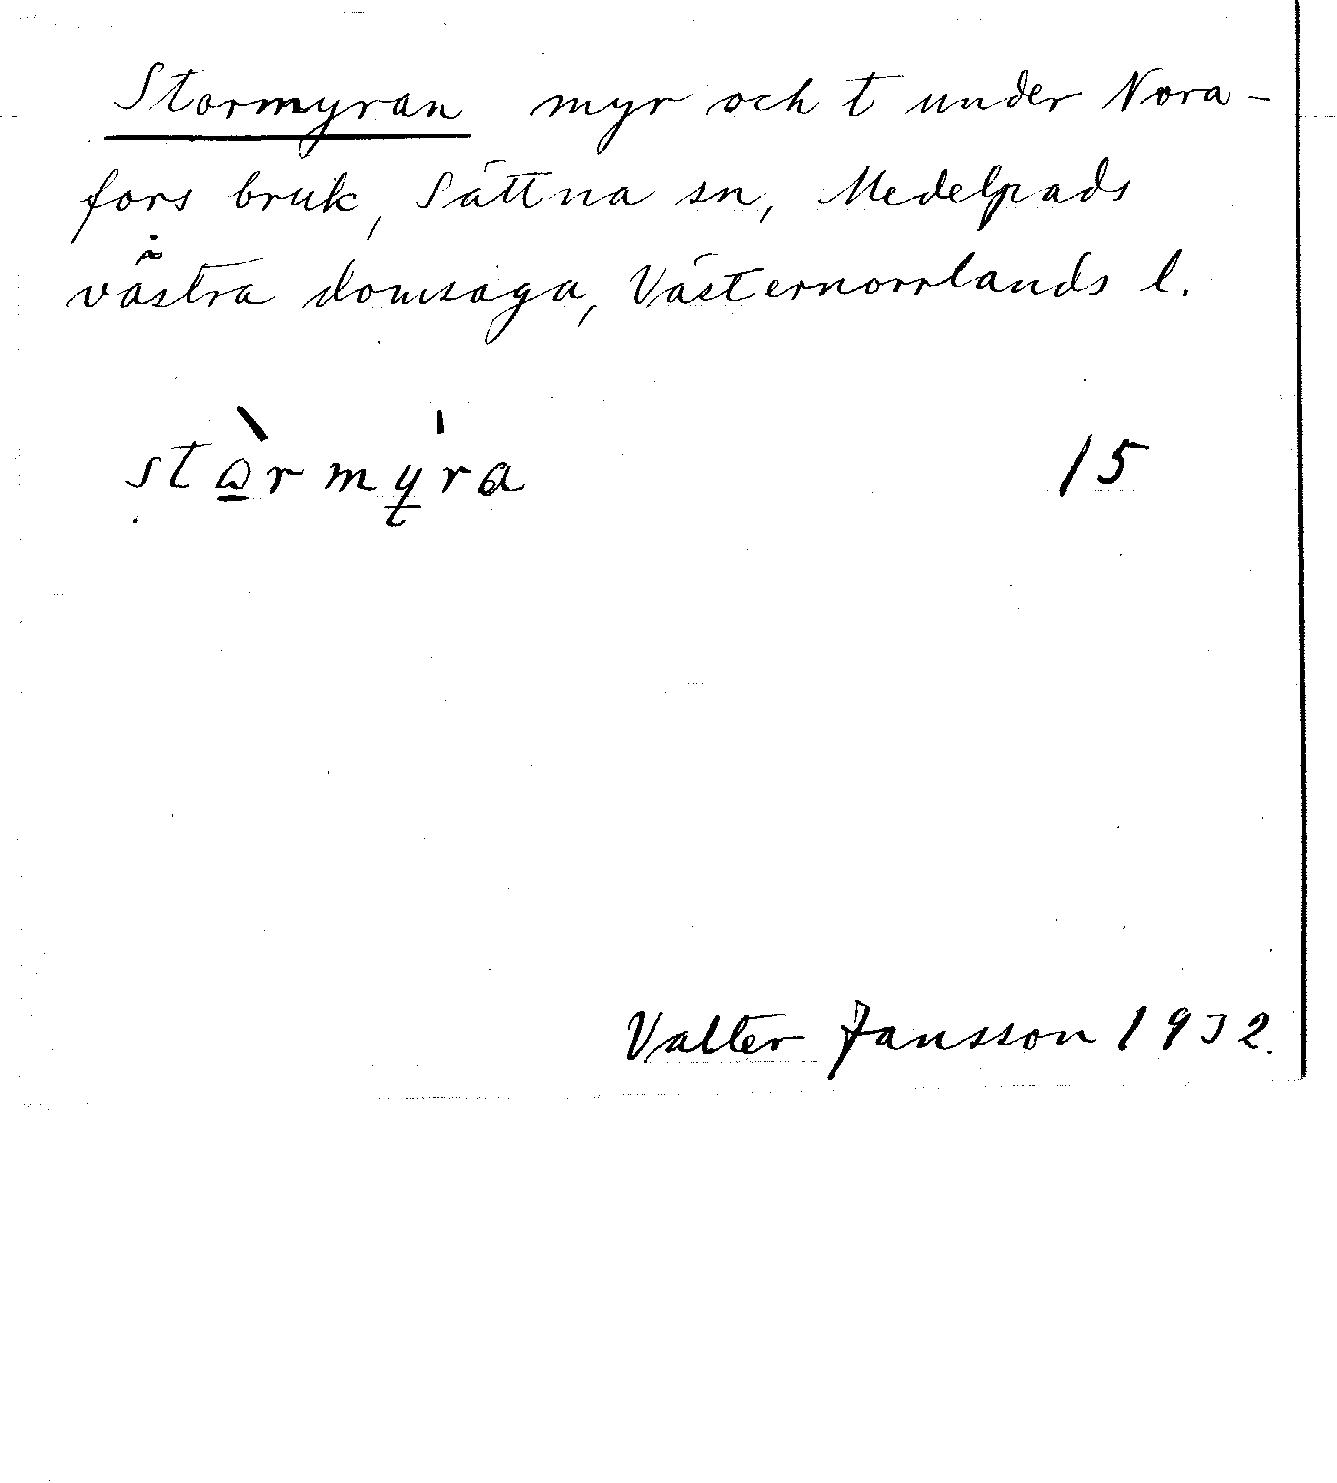 Stormyran myr och t under Nora-
fors bruk, Sättna sn, Medelpads
västra domsaga, Västernorrlands l.
stò̱rmy̱̍ra 15
Valter Jansson 1932.